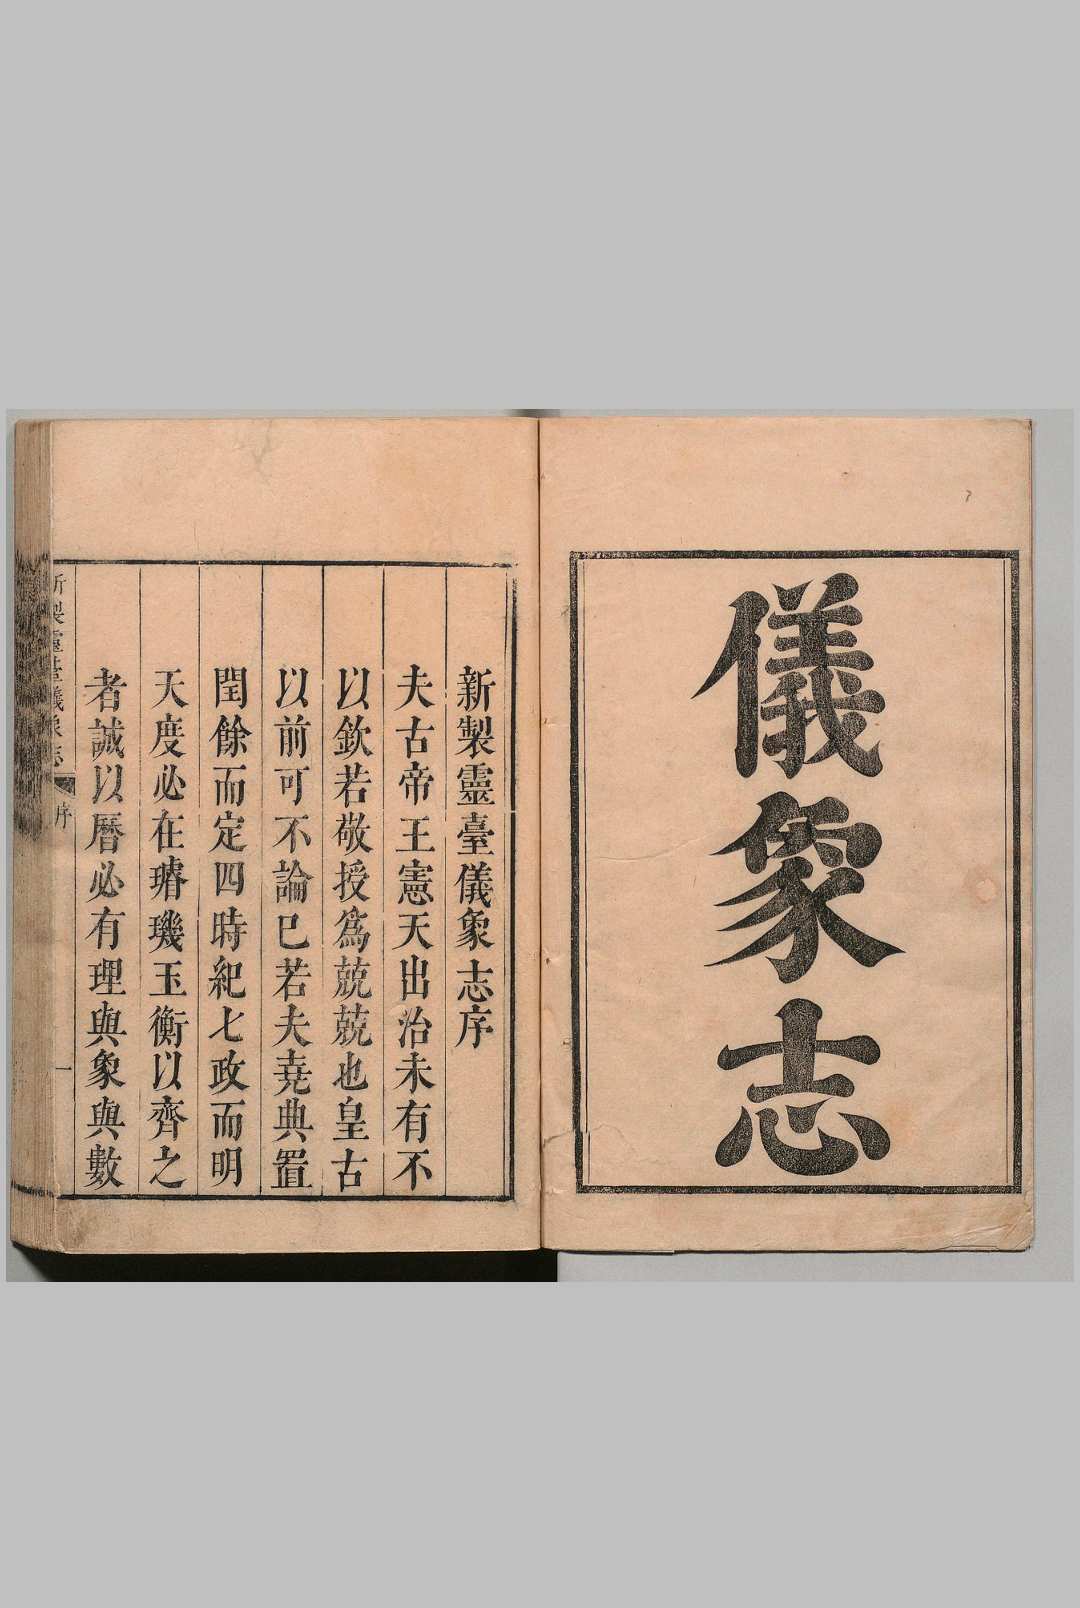 儀象志
新製靈臺儀象志序
夫古帝王憲天出治未有不
以欽若敬授爲兢兢也皇古
以前可不論已若夫堯典置
閏餘而定四時紀七政而明
天度必在璿璣玉衡以齊之
者誠以曆必有理與象與數
新製靈臺儀象志
序
一